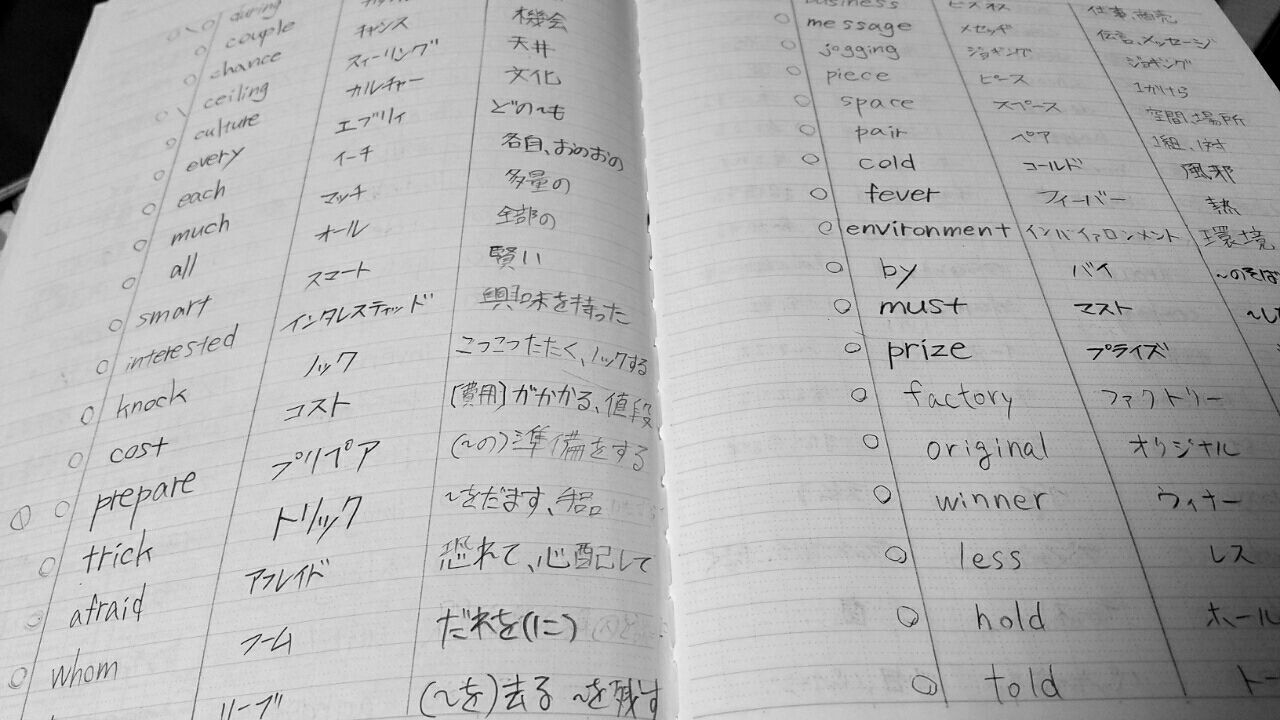 during
couple
chance チャンス 機会
ceiling スィーリング 天井
culture カルチャー 文化
every エブリィ どの〜も
each イーチ 各自、おのおの
much マッチ 多量の
all オール 全部の
smart スマート 賢い
interested インタレスティッド 興味を持った
knock ノック こつこつたたく、ノックする
cost コスト [費用]がかかる、値段
prepare プリペア (〜の)準備をする
trick トリック 〜をだます、手品
afraid アフレイド 恐れて、心配して
whom フーム だれを(に)
リーブ (〜を)去る 〜を残す
business ビズネス 仕事、商売
message メセッヂ 伝言、メッセージ
jogging ジョギング ジョギング
piece ピース 1かけら
space スペース 空間、場所
pair ペア 1組、1対
cold コールド 風邪
fever フィーバー 熱
environment インバイァロンメント 環境
by バイ 〜のそば
must マスト
prize プライズ
factory ファクトリー
original オリジナル
winner ウィナー
less レス
hold ホール
told トー